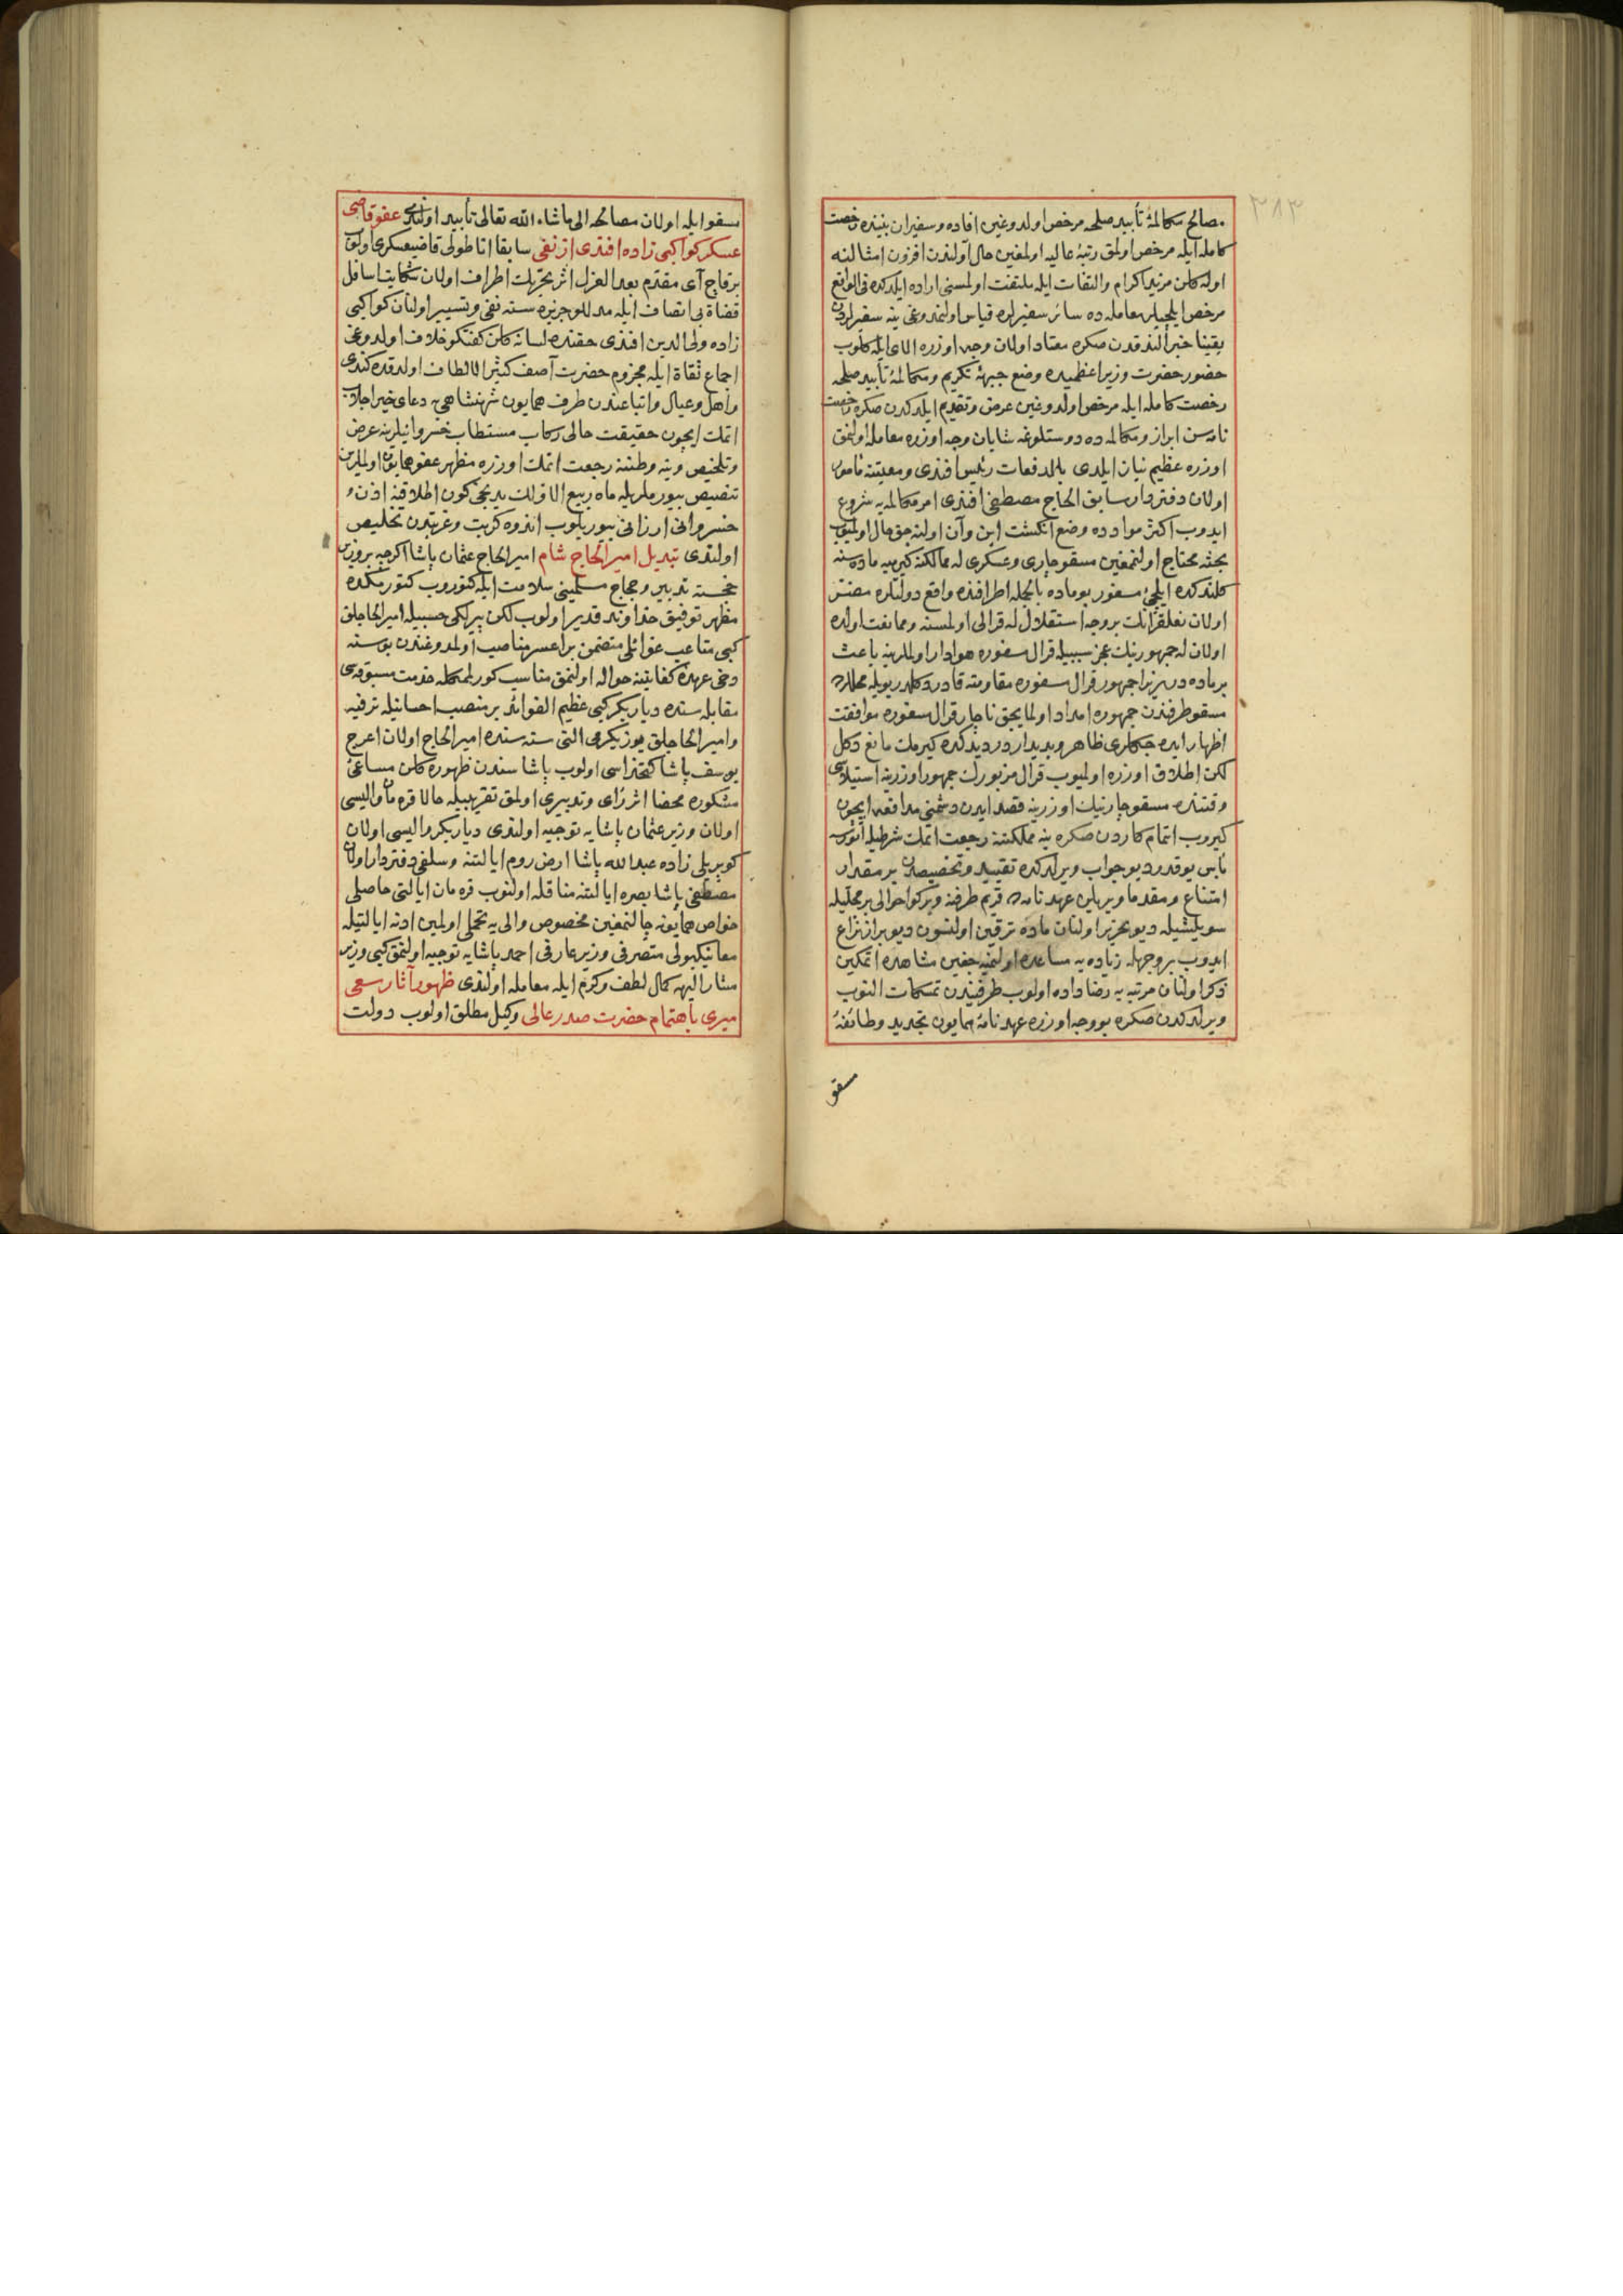 ٣٨٣
مصالح مكالمۀ تأبيد صلحه مرخص اولدوغين افاده و سفيران بيننده رخصت
كامله ايله مرخص اولمق رتبۀ عاليه اولمغين حال آولندن افزون امثالنه
اوله كلن مزيد اكرام والتفات ايله ملتفت اولمسنى اراده ايلدكده فى الواقع
مرخص ايلچيلر معامله ده سائر سفيرلره قياس اولنمدوغى ينه سفيرلردن
يقينا خبر النقدن صكره معتاد اولان وجه اوزره الاى ايله كلوب
حضور حضرت وزير اعظميده وضع جبهۀ تكريم ومكالمۀ تأبيد صلحه
رخصت كامله ايله مرخص اولدوغين عرض وتقديم ايلدكدن صكره رخصت
نامه سن ابراز ومكالمه ده دوستلوغه شايان وجه اوزره معامله اولنمق
اوزره عظيم نياز ايلدى بالدفعات رئيس افندى ومعيتنه مأمور
اولان دفتردار سابق الحاج مصطفى افندى امر مكالمه يه شروع
ايدوب اكثر مواد ده وضع انكشت اين وآن اولنه جق حال اولميوب
بحثه محتاج اولنمغين مسقو چارى وعسكرى له ممالكنه كيرميه ماده سنه
كلندكده ايلچئ مسفور بوماده بالجمله اطرافنده واقع دولتلره مضر
اولان نعلقرانك بروجه استقلال له قرالى اولمسنه وممانعت اولنده
اولان له جمهورينك عجز سببيله قرال مسفوره هوادار اولملرينه باعث
بر ماده در زيرا جمهور قرال مسفوره مقاومته قادر دكلدر بويله محللرده
مسقو طرفندن جمهوره امداد اولمايجق ناچار قرال مسفوره موافقت
اظهار ايده جكلرى ظاهر وبديدار در ديدكده كيرمك مانع دكل
لكن اطلاق اوزره اولميوب قرال مزبورك جمهور اوزرينه استيلاسى
وقتنده مسقو چارينك اوزرينه قصد ايدن دشمنى مدافعه ايچون
كيروب اتمام كاردن صكره ينه مملكتنه رجعت اتمك شرطيله اولورسه
بأس يوقدر ديو جواب ويرلدكده تقييد وتخصيصدن بر مقدار
امتناع ومقدما ويريلن عهدنامه ده قريم طرفنه ويركو احوالى بر محليله
سويلشيله ديو تحرير اولنان ماده ترقين اولنسون ديو براز نزاع
ايدوب بروجهله زياده يه مساعده اولنميه جغين مشاهده اتمكين
ذكر اولنان مرتبه يه رضاداده اولوب طرفيندن تمسكات النوب
ويرلدكدن صكره بو وجه اوزره عهدنامۀ همايون تجديد وطائفۀ
مسقو
مسقو ايله اولان مصالحه الى ماشاء الله تعالى تأبيد اولندى عفو قاضى
عسكر كواكبى زاده افندى از نفى سابقا اناطولى قاضيعسكرى اولوب
برقاچ آى مقدم بعد العزل اثر تحريك اطراف اولان شكايت اسافل
قضاة بى انصاف ايله مدللو جزيره سنه نفى وتسيير اولنان كواكبى
زاده ولى الدين افندى حقنده لسانه كلن كفتكو خلاف اولدوغى
اجماع ثقاة ايله مجزوم حضرت آصف كثير الالطاف اولدقده كندى
واهل وعيال واتباعندن طرف همايون شهنشاهى يه دعاى خير اجلاب
اتمك ايچون حقيقت حالى ركاب مستطاب خسروانيلرينه عرض
وتلخيص وينه وطننه رجعت اتمك اوزره مظهر عفو همايون اولملرين
تنصيص بيورملريله ماه ربيع الاولك يدنجى كون اطلاقنه اذن
خسروانى ارزانى بيوريلوب اندوه كربت وغربتدن تخليص
اولندى تبديل امير الحاج شام امير الحاج عثمان پاشا اكرچه بروزير
خجسته تدبير وحجاج مسلمينى سلامت ايله كتوروب كتورمكده
مظهر توفيق خداوند قدير اولوب لكن پيرلكى حسبيله امير الحاجلق
كبى متاعب غوائلى متضمن بر اعسر مناصب اولمدوغندن بوسنه
دخى عهدۀ كفايتنه حواله اولنمق مناسب كورلمكله خدمت مسبوقه سى
مقابله سنده ديار بكر كبى عظيم الفوائد بر منصب احسانيله ترفيه
وامير الحاجلق يوز يكرمى التى سنه سنده امير الحاج اولان اعرج
يوسف پاشا كتخداسى اولوب پاشا سندن ظهوره كلن مساعئ
مشكوره محضا اثر راى وتدبيرى اولمق تقريبيله حالا قره مان واليسى
اولان وزير عثمان پاشايه توجيه اولندى ديار بكر واليسى اولان
كوپريلى زاده عبد الله پاشا ارض روم ايالتنه وسلفى دفتردار اولان
مصطفى پاشا بصره ايالتنه مناقله اولنوب قره مان ايالتى حاصلى
خواص همايونه چالنمغين مخصوص والى يه تحملى اولمين ادنه ايالتيله
معا نيكبولى متصرفى وزير عارفى احمد پاشايه توجيه اولنمق كبى وزير
مشار اليهه كمال لطف وكرم ايله معامله اولندى ظهور آثار سعى
ميرى باهتمام حضرت صدر عالى وكيل مطلق اولوب دولت